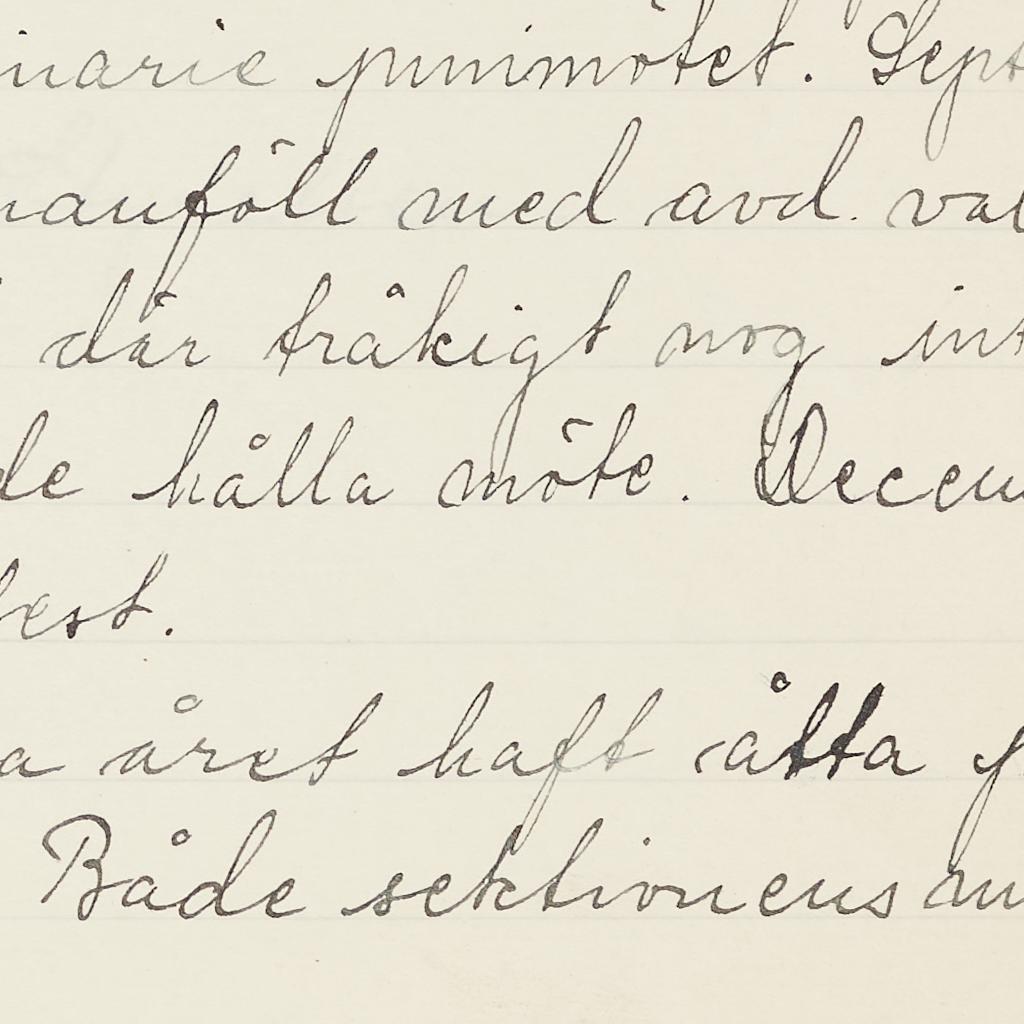 inarie junimötet. Sept
nanföll med avd. val
där tråkigt nog int
de hålla möte. Decem
fest.
a året haft åtta f
Både sektionens m